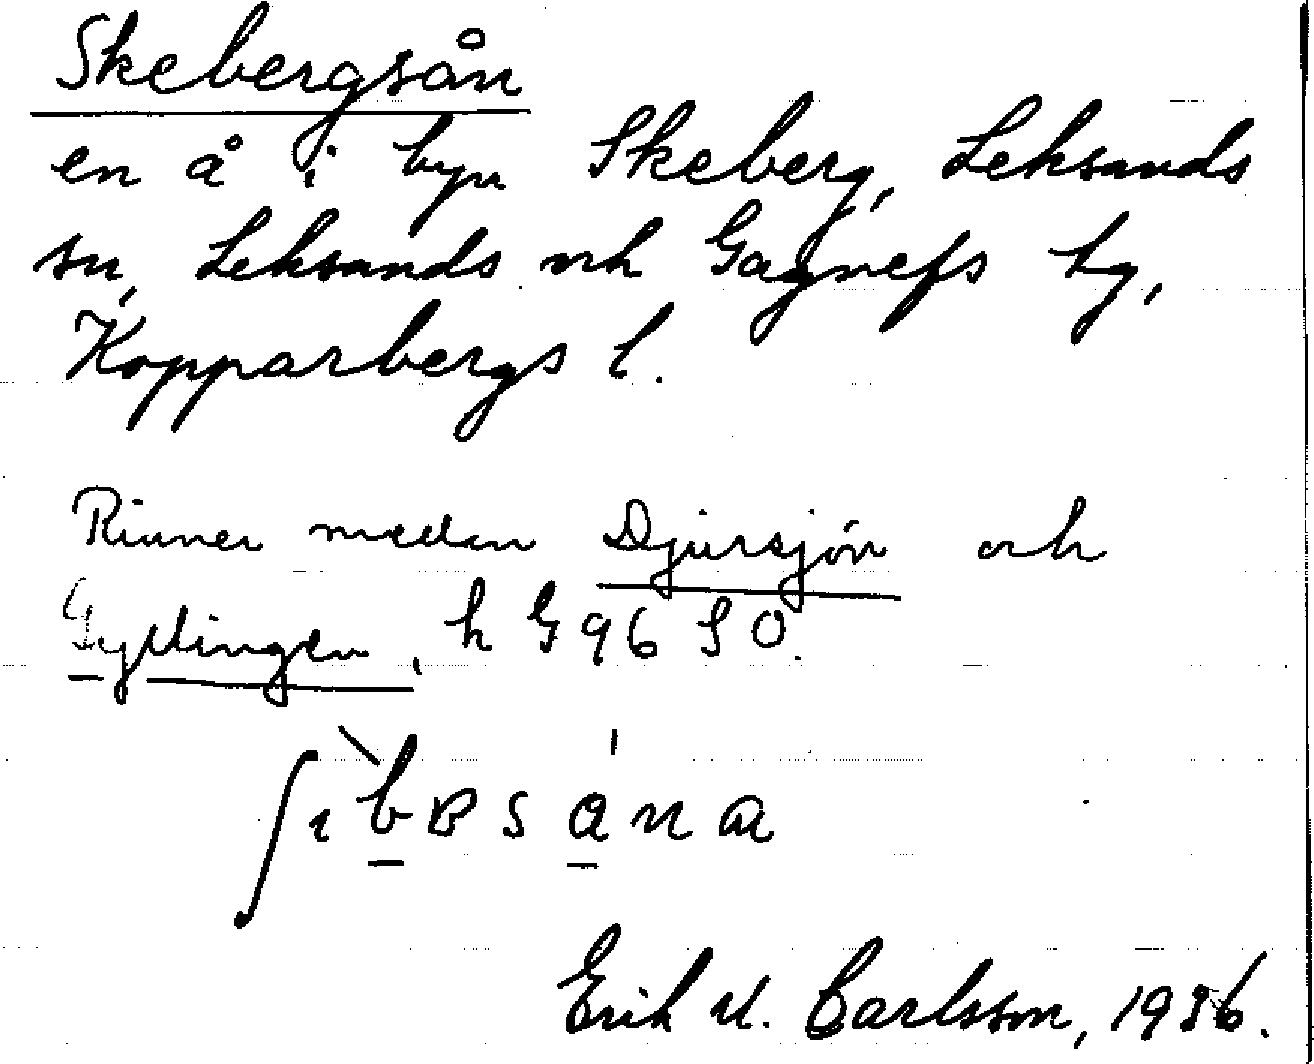 Skebergsån
en å i byn Skeberg, Leksands
sn, Leksands och Gagnefs tg,
Kopparbergs l.
Rinner mellan Djursjön och
Gyllingen, k G 96 S O.
Erik U. Carlsson, 1936.